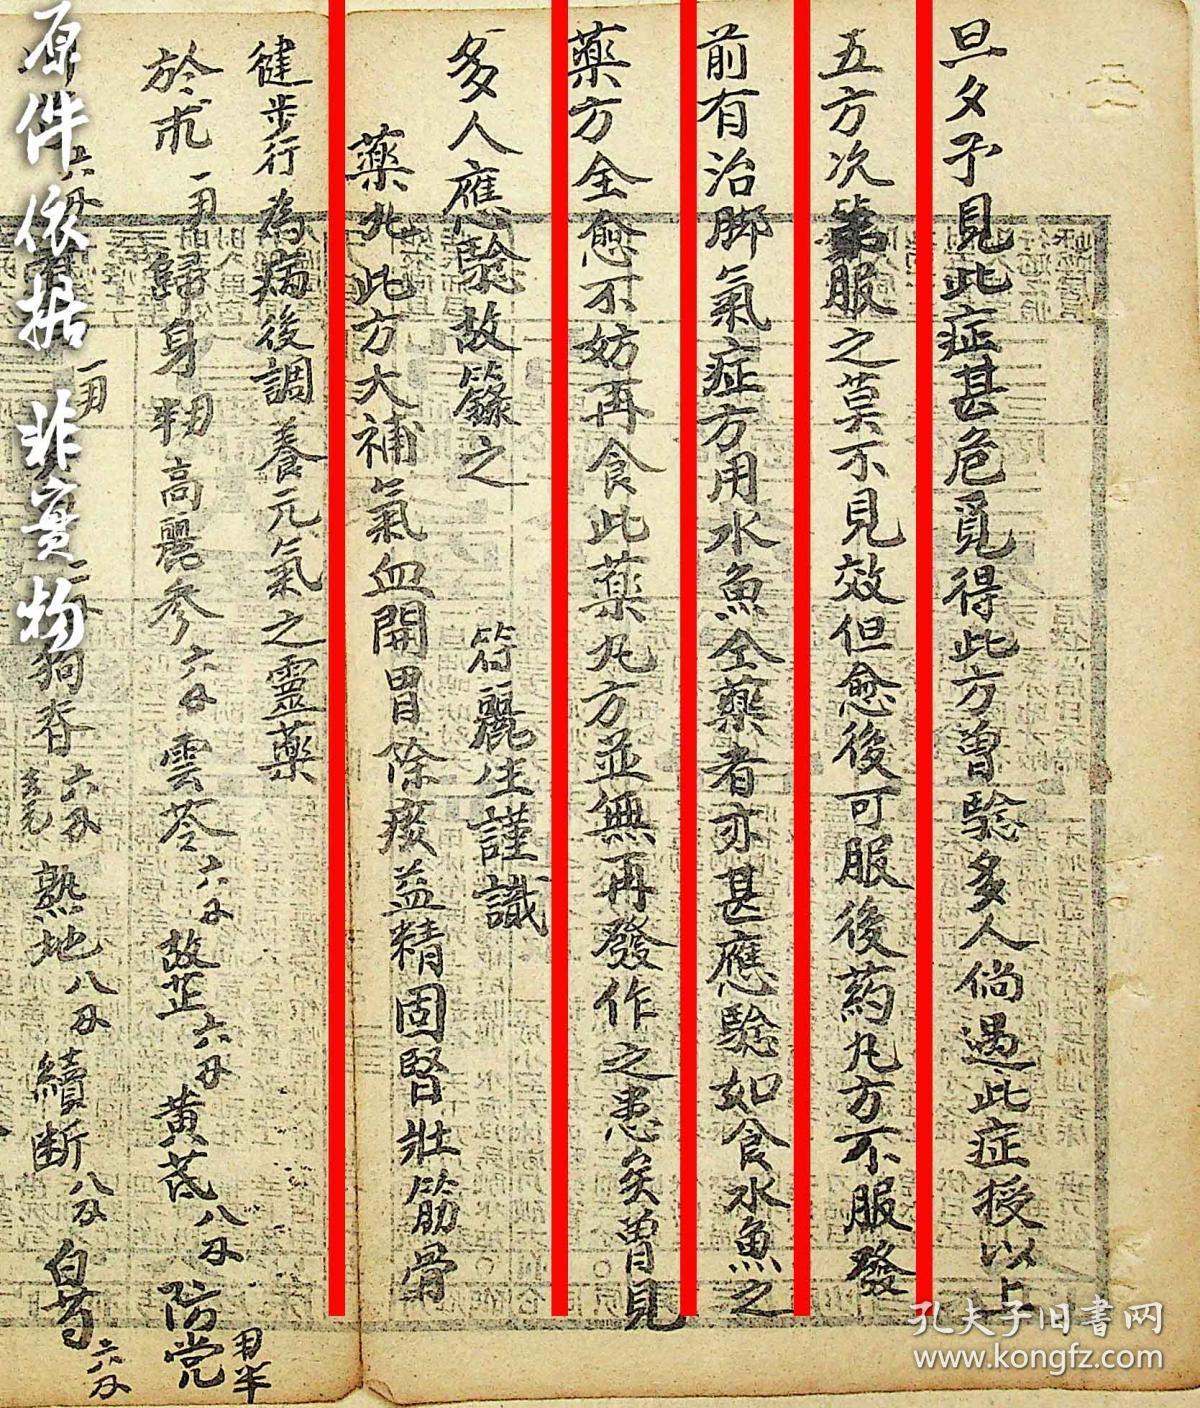 旦夕予見此症甚危覓得此方曾驗多人倘遇此症授以上
五方次第服之莫不見效但愈後可服後药丸方不服發
前有治脚氣症方用水魚仝藥者亦甚應驗如食水魚之
藥方全愈不妨再食此藥丸方並無再發作之患矣曾見
多人應驗故籙之 符麗生謹識
藥丸此方大補氣血開胃除痰益精固腎壯筋骨
健步行為病後調養元氣之靈藥
於朮 歸身 高麗參六分雲苓六分故芷六分黃芪八分防党
狗脊六分去毛熟地八分續断八分白芍六分
原件依据 非實物
孔夫子旧书网
www.kongfz.com